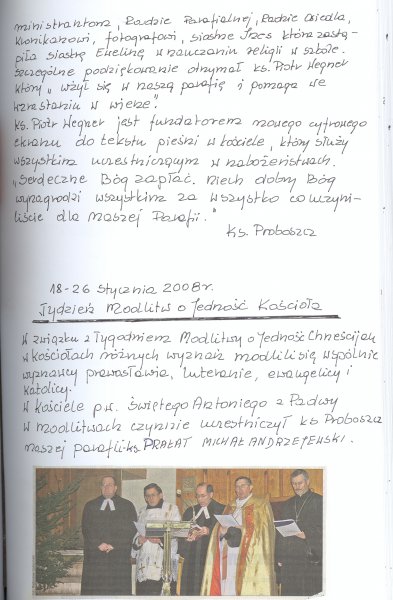 ministrantom, Radzie Parafialnej, Radzie Osiedla,
kronikarzowi, fotografowi, siostrze Ines która zastą-
piła siostrę Ewelinę w nauczaniu religii w szkole.
Szczególne podziękowanie otrzymał ks. Piotr Wegner
który „wżył się w naszą parafię i pomaga we
wzrastaniu w wierze".
Ks. Piotr Wegner jest fundatorem nowego cyfrowego
ekranu do tekstu pieśni w kościele, który służy
wszystkim uczestniczącym w nabożeństwach.
„Serdeczne Bóg zapłać. Niech dobry Bóg
wynagrodzi wszystkim za wszystko co uczyni-
liście dla naszej Parafii."
Ks. Proboszcz
18-26 stycznia 2008r.
Tydzień Modlitw o Jedność Kościoła
W związku z Tygodniem Modlitwy o Jedność Chrześcijan
w kościołach różnych wyznań modlili się wspólnie
wyznawcy prawosławia, luteranie, ewangelicy i
katolicy.
W kościele p.w. Świętego Antoniego z Padwy
w modlitwach czynnie uczestniczył ks Proboszcz
naszej parafii-ks PRAŁAT MICHAŁ ANDRZEJEWSKI.